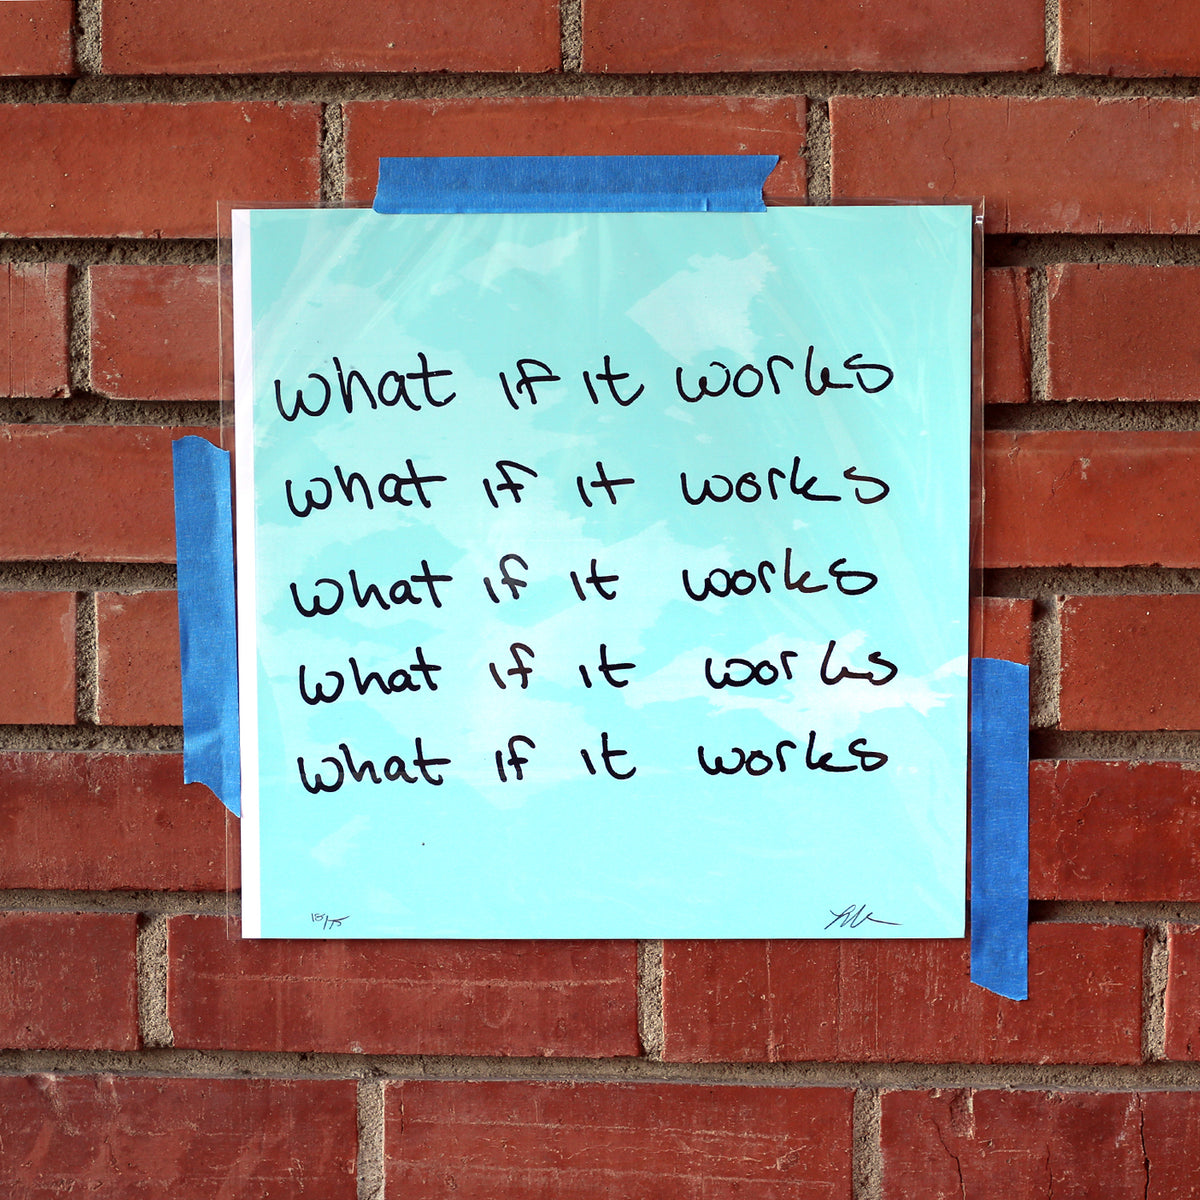 what if it works
what if it works
what if it works
what if it works
what if it works